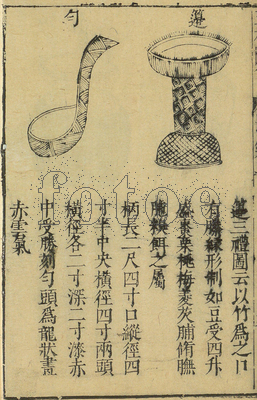 籩
勺
籩三禮圖云以竹爲之口
有縢緣形制如豆受四升
盛棗栗桃梅菱芡脯脩膴
鮑糗餌之屬
柄長二尺四寸口縱徑四
寸半中央橫徑四寸兩頭
橫徑各二寸深二寸漆赤
中受勝刻勺頭爲龍狀畫
赤雲氣
fotoe